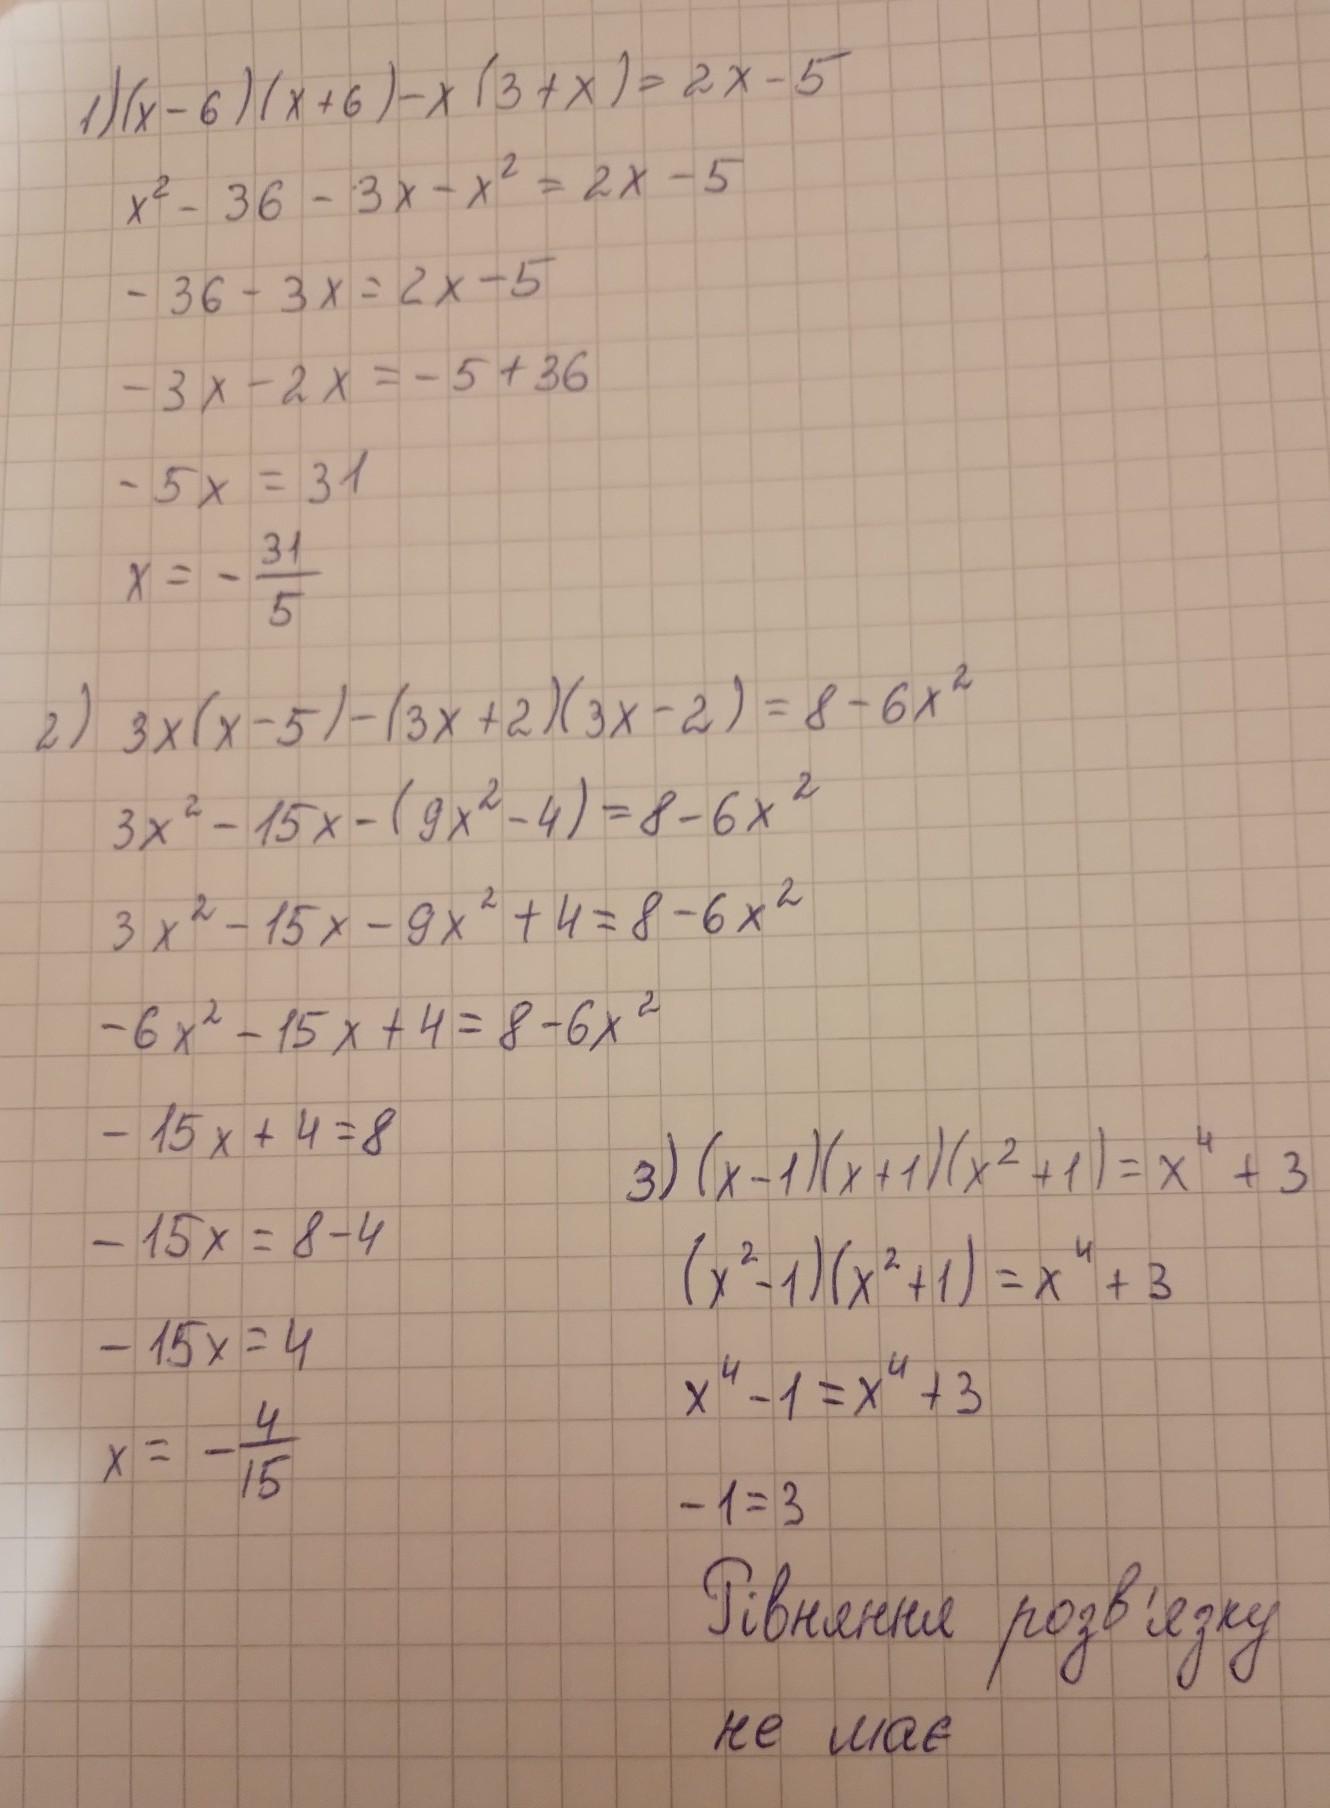 1) (x-6)(x+6)-x(3+x)=2x-5
x²-36-3x-x²=2x-5
-36-3x=2x-5
-3x-2x=-5+36
-5x=31
x=-31/5
2) 3x(x-5)-(3x+2)(3x-2)=8-6x²
3x²-15x-(9x²-4)=8-6x²
3x²-15x-9x²+4=8-6x²
-6x²-15x+4=8-6x²
-15x+4=8
-15x=8-4
-15x=4
x=-4/15
3) (x-1)(x+1)(x²+1)=x⁴+3
(x²-1)(x²+1)=x⁴+3
x⁴-1=x⁴+3
-1=3
Рівняння розв'язку
не має